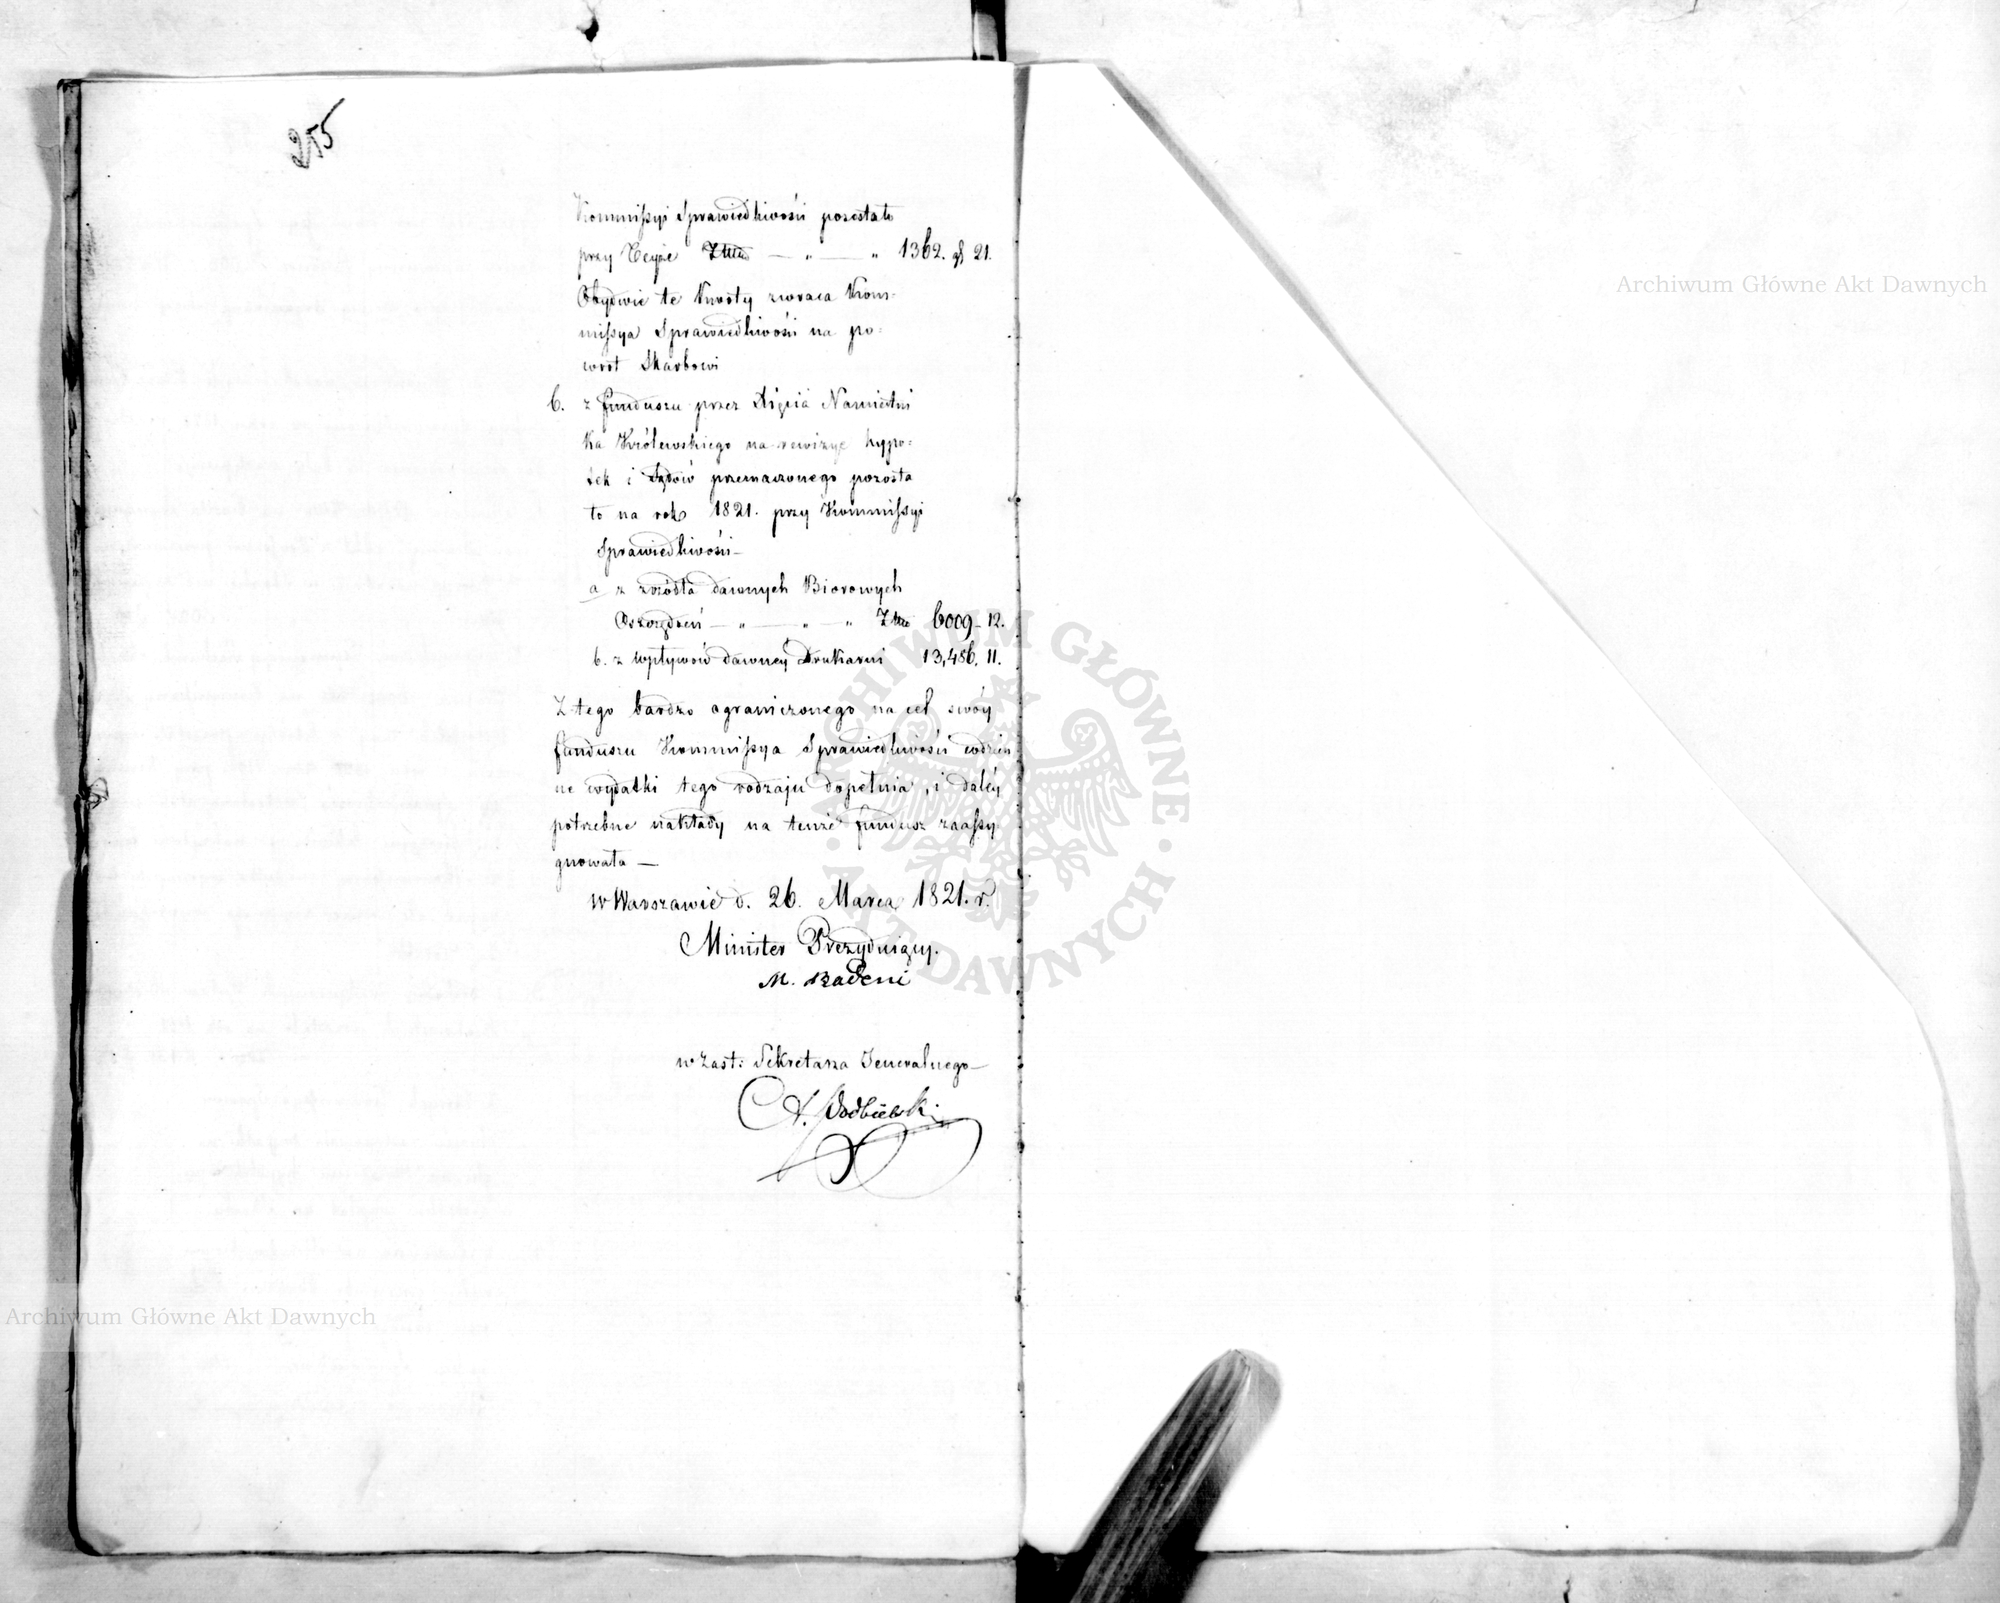 255
Kommissyi Sprawiedliwości pozostało
przy Teyże Złto — „ — „ 1362. gr 21.
Obydwie te Kwoty zwraca Kom-
missya Sprawiedliwości na po-
wrót Skarbowi
6. z funduszu przez Xięcia Namiestni
ka Królewskiego na rewizyę hypo-
tek i Sądów przeznaczonego pozosta
ło na rok 1821. przy Kommissyi
Sprawiedliwości —
a z źródła dawnych Biorowych
Oszczędzeń — „ — „ — „ Złto 6009 – 12.
b. z wpływów dawney Drukarni 13,486. 11.
Z tego bardzo ograniczonego na cel swóy
funduszu Kommissya Sprawiedliwości codzien
ne wydatki tego rodzaju dopełnia, i daléy
potrzebne nakłady na tenże fundusz zaassy
gnowała —
w Warszawie d. 26. Marca 1821. r.
Minister Prezyduiący.
M. Badeni
w Zast: Sekretarza Jeneralnego —
A. Podbielski
Archiwum Główne Akt Dawnych
Archiwum Główne Akt Dawnych
ARCHIWUM GŁÓWNE · AKT DAWNYCH ·